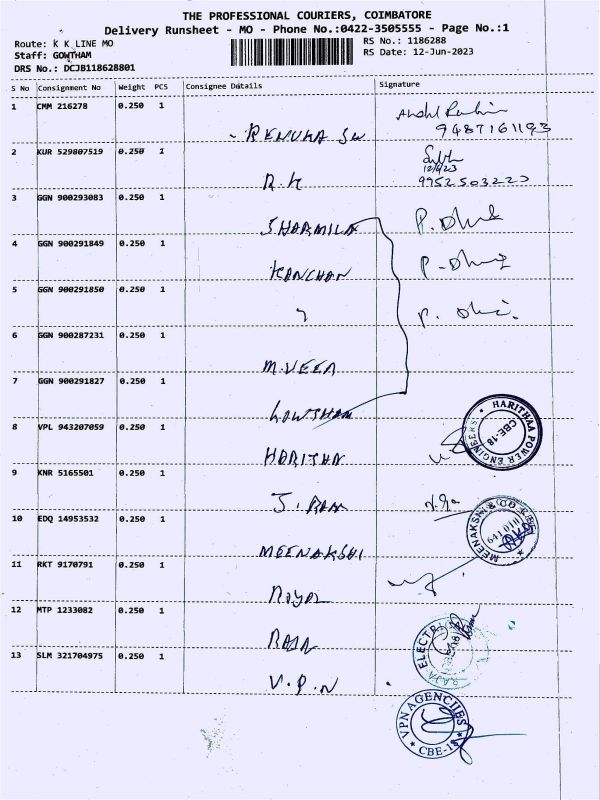 THE PROFESSIONAL COURIERS, COIMBATORE
Delivery Runsheet - MO - Phone No.:0422-3505555 - Page No.:1
Route: K K LINE MO
RS No.: 1186288
Staff: GOWTHAM
RS Date: 12-Jun-2023
DRS No.: DCJB118628801
S No Consignment No Weight PCS Consignee Details Signature
1 CMM 216278 0.250 1
RENUKA
9487161193
2 KUR 529807519 0.250 1
12/6/23
R.K 9952503223
3 GGN 900293083 0.250 1
SHARMILA
4 GGN 900291849 0.250 1
KANCHAN
5 GGN 900291850 0.250 1
6 GGN 900287231 0.250 1
M.VEER
7 GGN 900291827 0.250 1
GOWTHAM
8 VPL 943207059 0.250 1
HARITHAA POWER ENGINEERS
CBE-18
HARITHA
9 KNR 5165501 0.250 1
J. RAM
10 EDQ 14953532 0.250 1
MEENAKSHI & CO
MEENAKSHI
11 RKT 9170791 0.250 1
ROYAL
12 MTP 1233082 0.250 1
RAJA
RAJA ELECTRI
13 SLM 321704975 0.250 1
V.P.N
VPN AGENCIIES
CBE-18